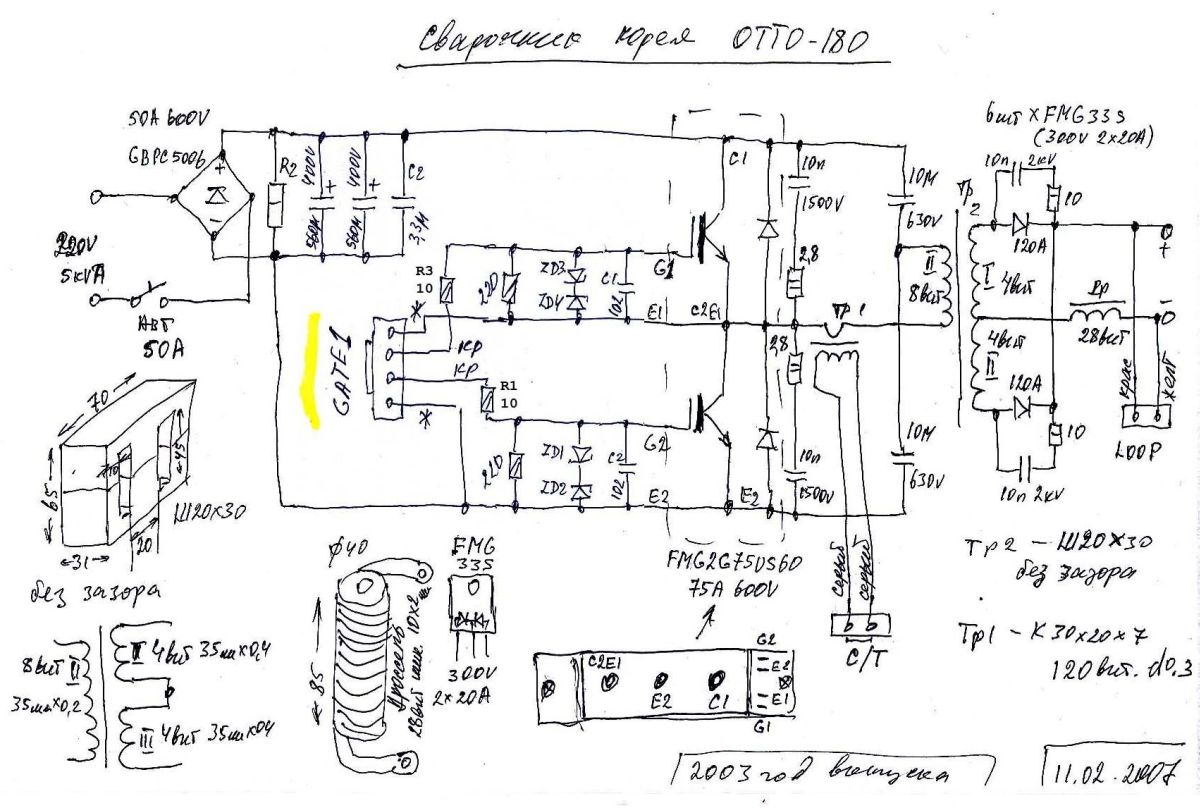 Сварочник корея ОТТО-180
50A 600V
GBPC5006
220V
5кVA
АВТ
50A
R2
400V
560м
400V
560м
C2
3,3м
R3
10
220
ZD3
ZD4
C1
102
G1
E1
C1
C2E1
GATE1
*
КР
КР
*
R1
10
220
ZD1
ZD2
C2
102
G2
E2
E2
10n
1500V
2,8
2,8
10n
1500V
Тр1
10м
630V
10м
630V
II
8вит
Тр2
6шт x FMG33S
(300V 2x20A)
10n 2кV
10
120A
I
4вит
4вит
II
120A
10
10n 2кV
Др
28вит
+
-
крас
желт
LOOP
серый
серый
С/Т
FMG2G75US60
75A 600V
70
65
31
10
45
20
Ш20x30
без зазора
8вит II
35мм x 0,2
II 4вит 35мм x 0,4
III 4вит 35мм x 04
ф40
85
Дроссель
28вит шин. 10x2
FMG
33S
300V
2x20A
C2E1
E2
C1
G2
E2
E1
G1
Тр2 - Ш20x30
без зазора
Тр1 - К30x20x7
120вит. d0.3
2003 год выпуска
11.02.2007